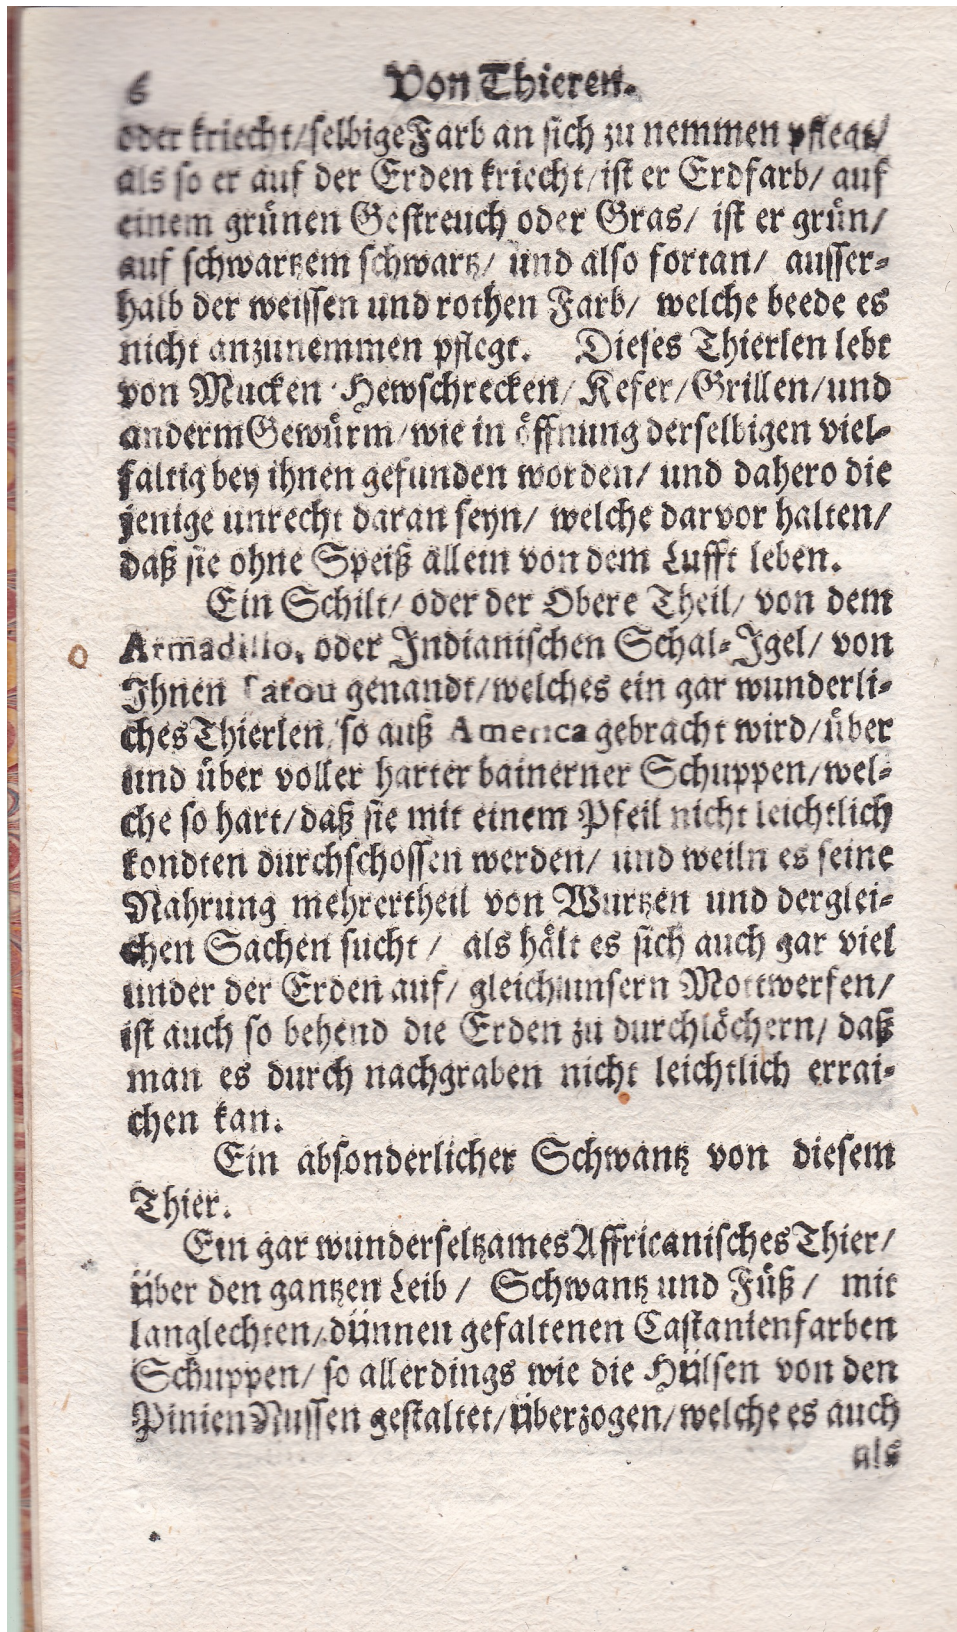 6 Von Thieren.
oder kriecht/ selbige Farb an sich zu nemmen pflegt/
als so er auf der Erden kriecht/ ist er Erdfarb/ auf
einem grünen Gestreuch oder Gras/ ist er grün/
auf schwartzem schwartz/ und also fortan/ ausser-
halb der weissen und rothen Farb/ welche beede es
nicht anzunemmen pflegt. Dieses Thierlen lebt
von Mucken Hewschrecken/ Kefer/ Grillen/ und
anderm Gewürm/ wie in öffnung derselbigen viel-
faltig bey ihnen gefunden worden/ und dahero die
jenige unrecht daran seyn/ welche darvor halten/
daß sie ohne Speiß allein von dem Lufft leben.
Ein Schilt/ oder der Obere Theil/ von dem
Armadillo, oder Indianischen Schal-Igel/ von
Ihnen Tatou genandt/ welches ein gar wunderli-
ches Thierlen/ so auß America gebracht wird/ über
und über voller harter bainerner Schuppen/ wel-
che so hart/ daß sie mit einem Pfeil nicht leichtlich
kondten durchschossen werden/ und weiln es seine
Nahrung mehrertheil von Wurtzen und derglei-
chen Sachen sucht/ als hält es sich auch gar viel
under der Erden auf/ gleich unsern Mottwerfen/
ist auch so behend die Erden zu durchlöchern/ daß
man es durch nachgraben nicht leichtlich errai-
chen kan.
Ein absonderlicher Schwantz von diesem
Thier.
Ein gar wunderseltzames Affricanisches Thier/
über den gantzen Leib/ Schwantz und Füß/ mit
langlechten/ dünnen gefaltenen Castanienfarben
Schuppen/ so allerdings wie die Hülsen von den
Pinien Nussen gestaltet/ überzogen/ welche es auch
als